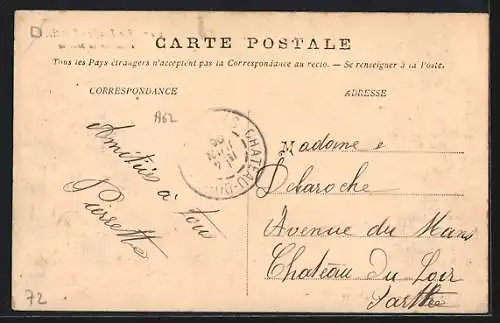 D
CARTE POSTALE
Tous les Pays étrangers n'acceptent pas la Correspondance au recto. — Se renseigner à la Poste.
CORRESPONDANCE
ADRESSE
A62
Amitiés à tous
Pierrette
CHATEAU-D
Madame
Delaroche
Avenue du Mans
Chateau du Loir
Sarthe
72